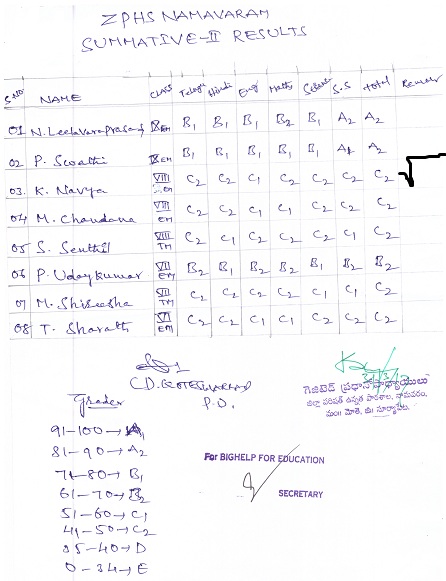 ZPHS NAMAVARAM
SUMMATIVE-II RESULTS
S.NO NAME CLASS Telugu Hindi Eng Maths Science S.S Total Remar
01 N. Leelavaraprasad IX EM B1 B1 B1 B2 B1 A2 A2
02 P. Swathi IX EM B1 B1 B1 B1 B1 A1 A2
03. K. Navya VIII EM C2 C2 C1 C2 C2 C2 C2
04 M. Chandana VIII EM C2 C2 C1 C1 C2 C2 C2
05 S. Senthil VIII TM C2 C1 C2 C2 C1 C2 C2
06 P. Udaykumar VII EM B2 B1 B2 B2 B1 B2 B2
07 M. Shireesha VII TM C2 C2 C2 C2 C1 C1 C2
08 T. Sharath VII EM C2 C2 C1 C1 C2 C2 C2
C.D. KOTESWARRAO
P.D.
Grades
91-100→A1
81-90→A2
71-80→B1
61-70→B2
51-60→C1
41-50→C2
35-40→D
0-34→E
గెజిటెడ్ ప్రధానోపాధ్యాయులు
జిల్లా పరిషత్ ఉన్నత పాఠశాల, నామవరం,
మం॥ మోతె, జి॥ సూర్యాపేట.
For BIGHELP FOR EDUCATION
SECRETARY